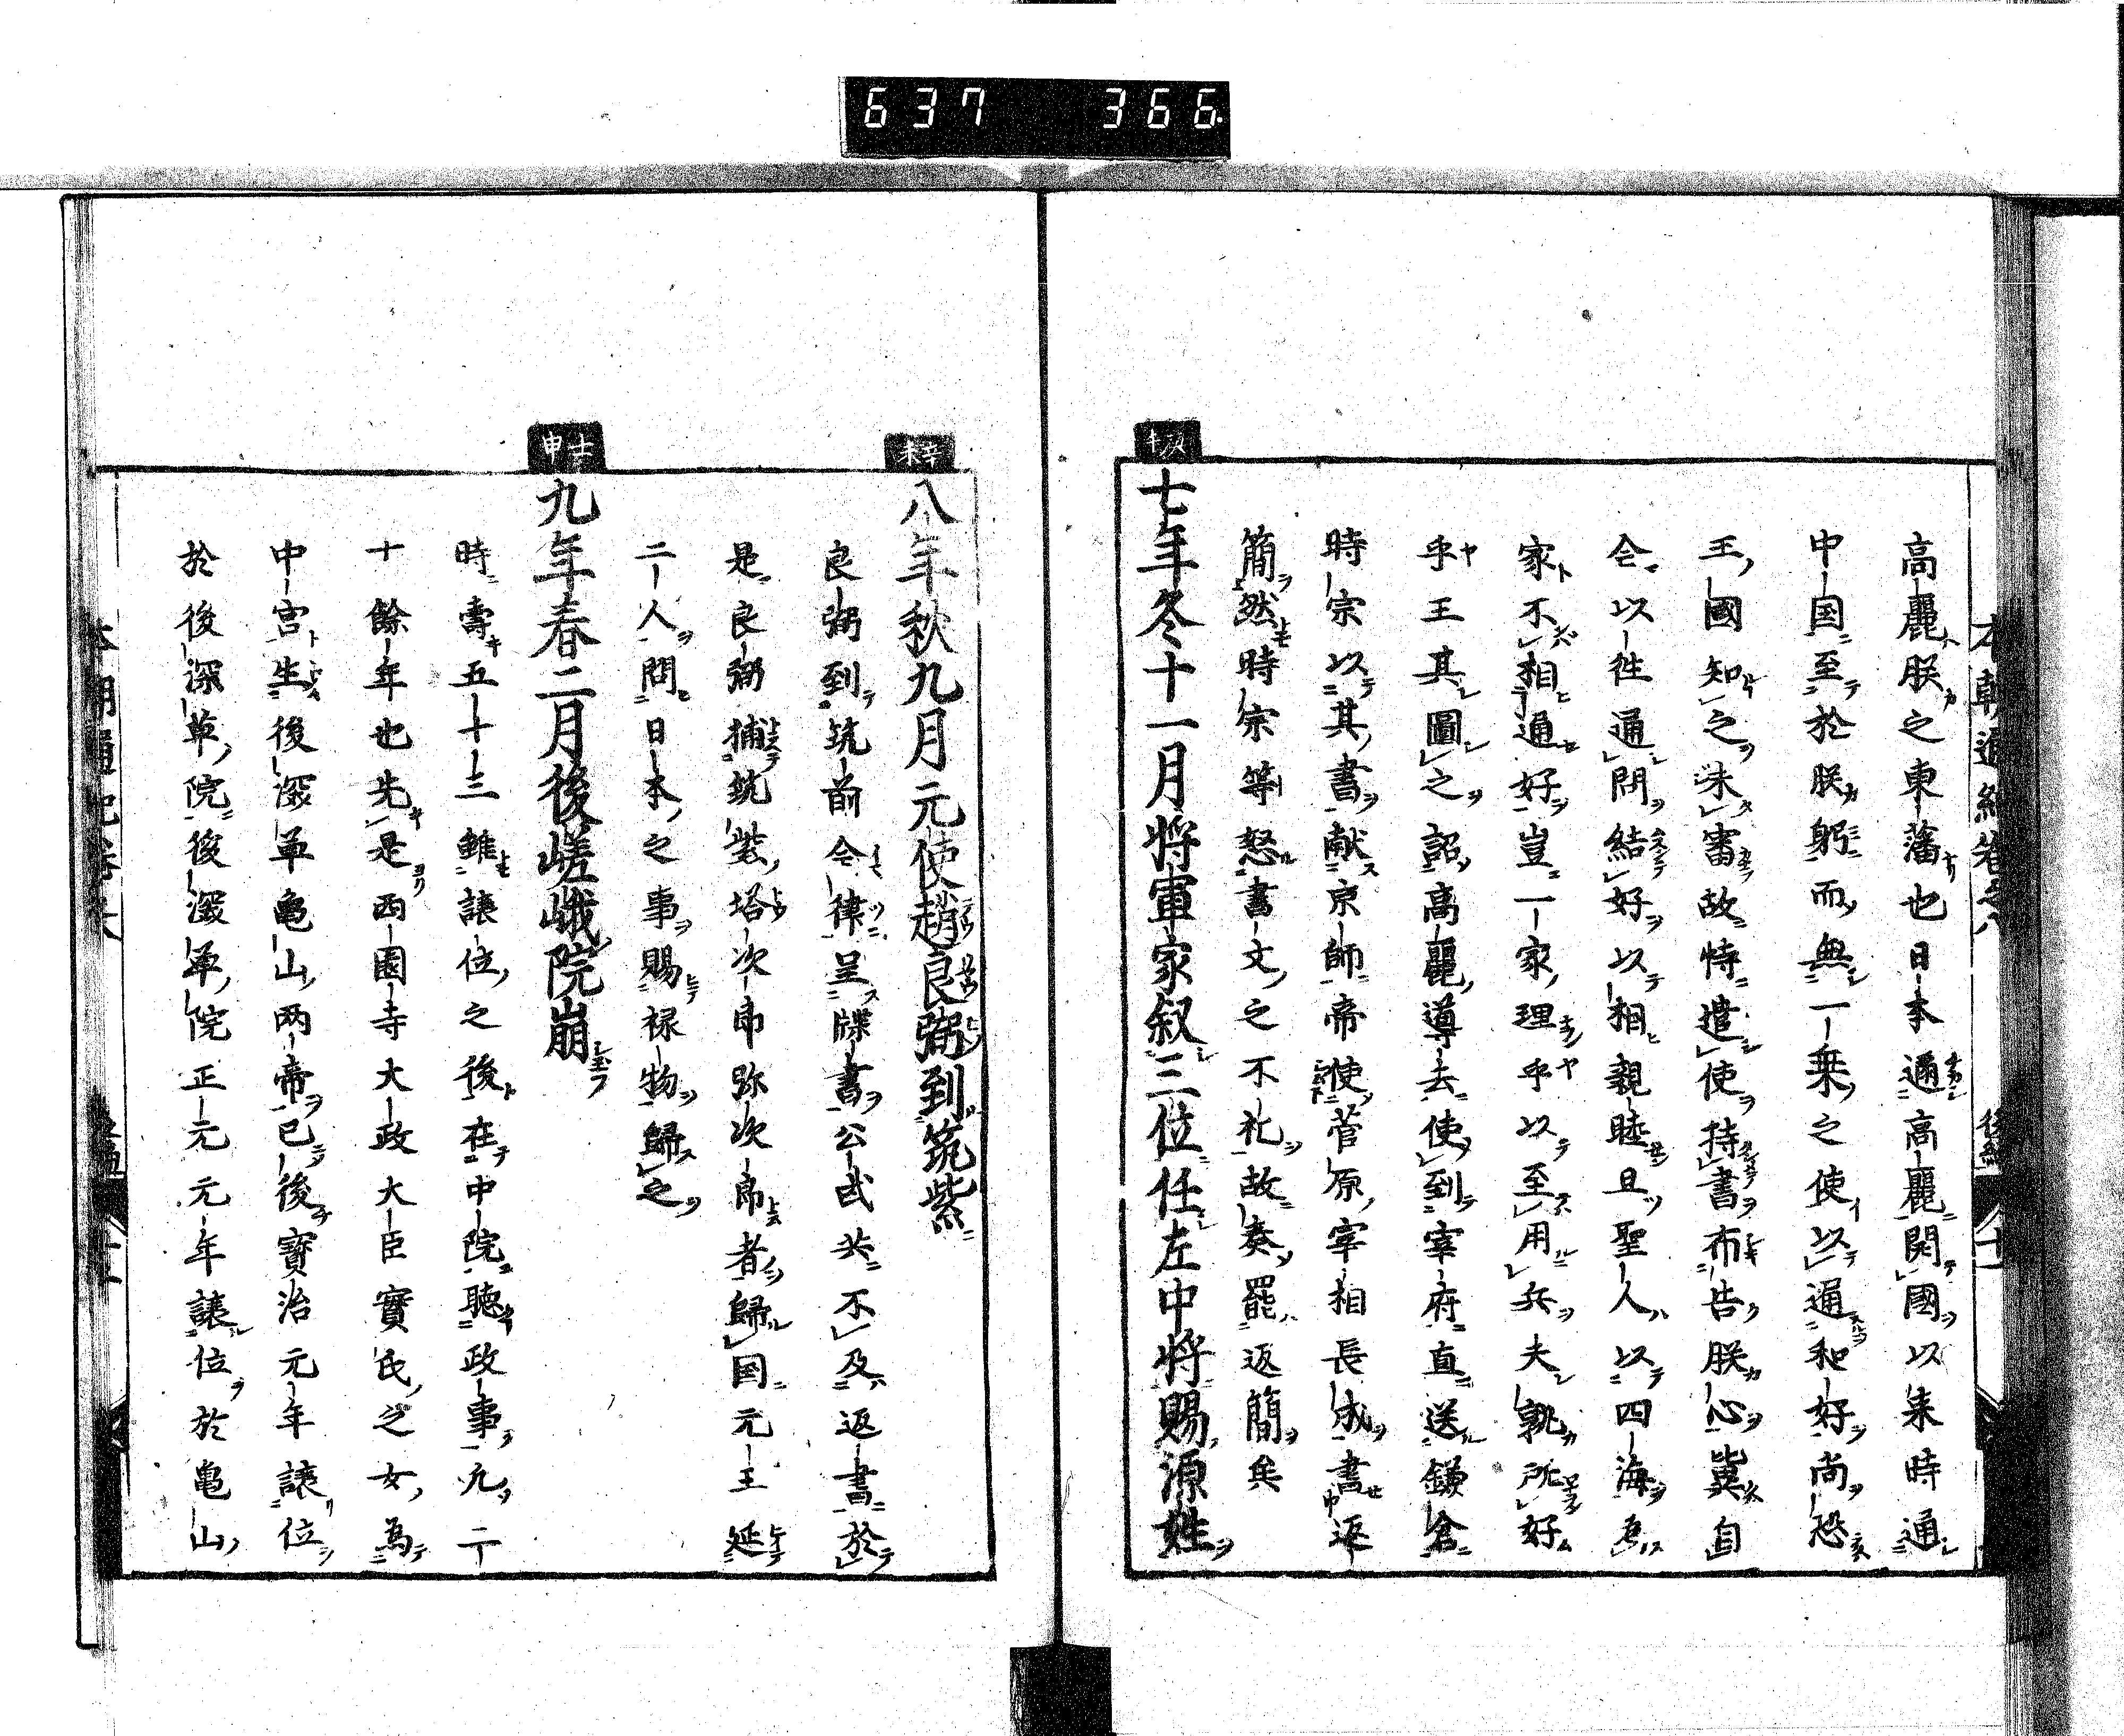 637 366
高麗朕之東藩也日本邇高麗開國以来時通
中国至於朕躬而無一乗之使以通和好尚恐
王國知之未審故特遣使持書布告朕心冀自
今以徃通問結好以相親睦且聖人以四海為
家不相通好豈一家理乎以至用兵夫孰所好
乎王其圖之詔高麗導去使到宰府直送鎌倉
時宗以其書献京師帝使菅原宰相長成書返
簡然時宗等怒書文之不礼故奏罷返簡矣
七年冬十一月将軍家叙三位任左中将賜源姓
辛未
八年秋九月元使趙良弼到筑紫
良弼到筑前今津呈牒書公武共不及返書於
是良弼捕筑紫塔次郎弥次郎者歸国元王延
二人問日本之事賜禄物歸之
壬申
九年春二月後嵯峨院崩
時壽五十三雖譲位之後在中院聴政事九二
十餘年也先是西園寺大政大臣實氏之女為
中宮生後深草亀山两帝已後寳治元年譲位
於後深草院後深草院正元元年譲位於亀山